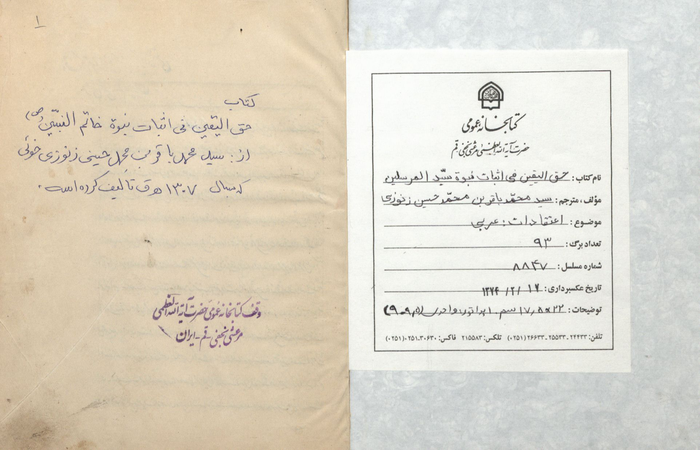 ۱
کتاب
حق الیقین فی اثبات نبوة خاتم النبیّین (ص)
از: سید محمد باقر بن محمد حسینی زنوزی خوئی
که بسال ۱۳۰۷ ه‍ ق تألیف کرده است.
وقف کتابخانه عمومی حضرت آیة الله العظمی
مرعشی نجفی - قم - ایران
کتابخانه عمومی
حضرت آیة الله العظمی مرعشی نجفی قم
نام کتاب: حق الیقین فی اثبات نبوة سیّد المرسلین
مؤلف، مترجم: سید محمّد باقر بن محمّد حسین زنوزی
موضوع: اعتقادات: عربی
تعداد برگ: ۹۳
شماره مسلسل: ۸۸۴۷
تاریخ عکسبرداری: ۱۳۷۴/۲/۱۲
توضیحات: ۲۲×۱۷٫۵ سم
تلفن: ۲۴۴۳۳-۲۵۵۳۳-۲۶۶۳۳ (۰۲۵۱) تلکس: ۲۱۵۵۸۳ فاکس: ۳۰۶۳۰-۰۲۵۱ (۰۲۵۱)